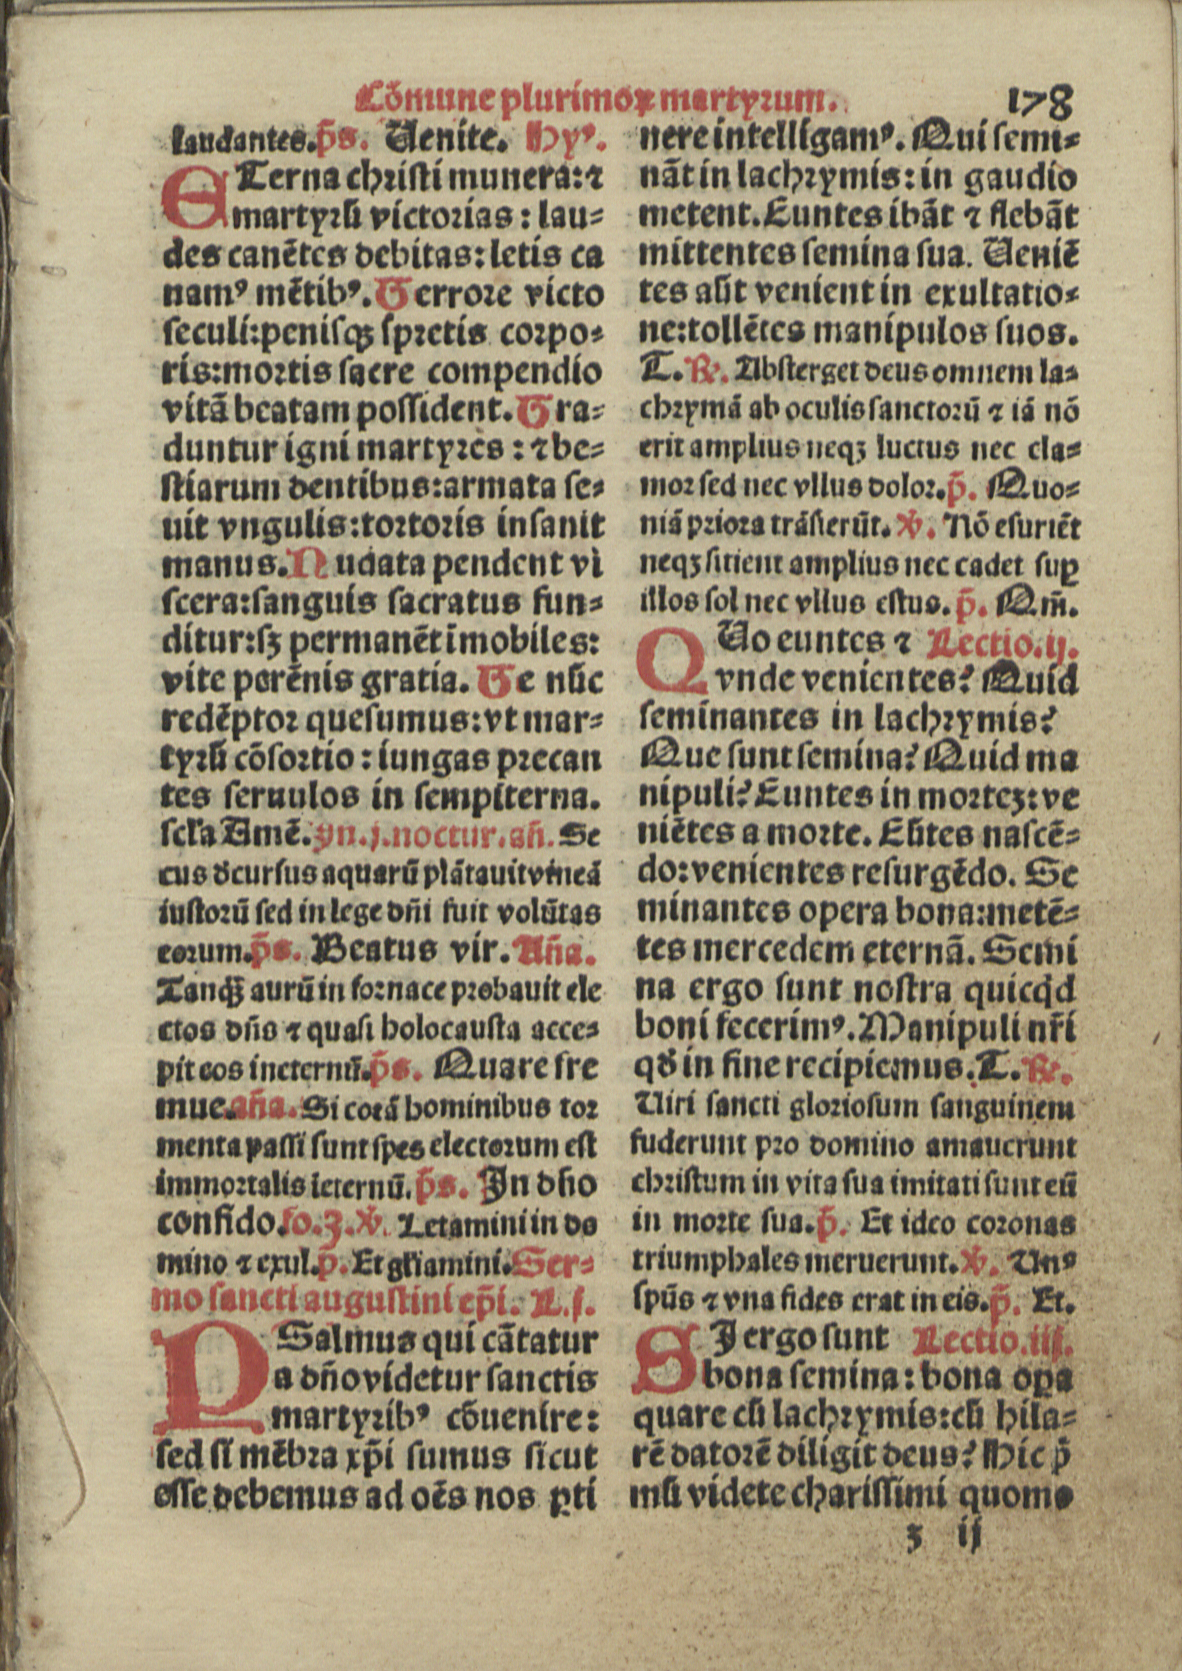 Cõmune plurimoꝝ martyrum. 178
laudantes.p̃s. Uenite. Hyꝰ.
ETerna christi munera:⁊
martyrũ victorias: lau⸗
des canẽtes debitas:letis ca
namꝰ mẽtibꝰ.Terrore victo
seculi:penisqꝫ spretis corpo⸗
ris:mortis sacre compendio
vitã beatam possident.Tra⸗
duntur igni martyres:⁊be⸗
stiarum dentibus:armata se⸗
uit vngulis:tortoris insanit
manus.Nudata pendent vi
scera:sanguis sacratus fun⸗
ditur:sꝫ permanẽt ĩmobiles:
vite perẽnis gratia. Te nũc
redẽptor quesumus:vt mar⸗
tyrũ cõsortio: iungas precan
tes seruulos in sempiterna.
scła Amẽ.yn.j.noctur.añ. Se
cus dcursus aquarũ plãtauit vineã
iustorũ sed in lege dñi fuit volũtas
eorum.p̃s. Beatus vir. Aña.
Tanqꝫ aurũ in fornace probauit ele
ctos dñs ⁊ quasi holocausta acce⸗
pit eos ineternũ.p̃s. Quare fre
mue.aña. Si corã hominibus tor
menta passi sunt spes electorum est
immortalis ieternũ.p̃s. In dño
confido.so.3.℣. Letamini in do
mino ⁊ exul.p̃. Et gl̃iamini.Ser⸗
mo sancti augustini ep̃i. L.j.
PSalmus qui cãtatur
a dño videtur sanctis
martyribꝰ cõuenire:
sed si mẽbra xp̃i sumus sicut
esse debemus ad oẽs nos ꝑti
nere intelligamꝰ. Qui semi⸗
nãt in lachrymis: in gaudio
metent.Euntes ibãt ⁊ flebãt
mittentes semina sua. Ueniẽ
tes aũt venient in exultatio⸗
ne:tollẽtes manipulos suos.
T.℟. Absterget deus omnem la⸗
chrymã ab oculis sanctorũ ⁊ iã nõ
erit amplius neqꝫ luctus nec cla⸗
mor sed nec vllus dolor.p̃. Quo⸗
niã priora trãsierũt. ℣. Nõ esuriẽt
neqꝫ sitient amplius nec cadet suꝑ
illos sol nec vllus estus. p̃. Qm̃.
QUo euntes ⁊ Lectio.ij.
vnde venientes? Quid
seminantes in lachrymis?
Que sunt semina? Quid ma
nipuli? Euntes in morteꝫ:ve
niẽtes a morte. Eũtes nascẽ⸗
do:venientes resurgẽdo. Se
minantes opera bona:metẽ⸗
tes mercedem eternã. Semi
na ergo sunt nostra quicqd
boni fecerimꝰ. Manipuli nr̃i
qď in fine recipiemus. T. ℟.
Uiri sancti gloriosum sanguinem
fuderunt pro domino amauerunt
christum in vita sua imitati sunt eũ
in morte sua.p̃. Et ideo coronas
triumphales meruerunt.℣. Unꝰ
spũs ⁊ vna fides erat in eis.p̃. Et.
SI ergo sunt Lectio.iij.
bona semina: bona oꝑa
quare cũ lachrymis:cũ hila⸗
rẽ datorẽ diligit deus? Hic p̃
mũ videte charissimi quomo
ꝫ ij